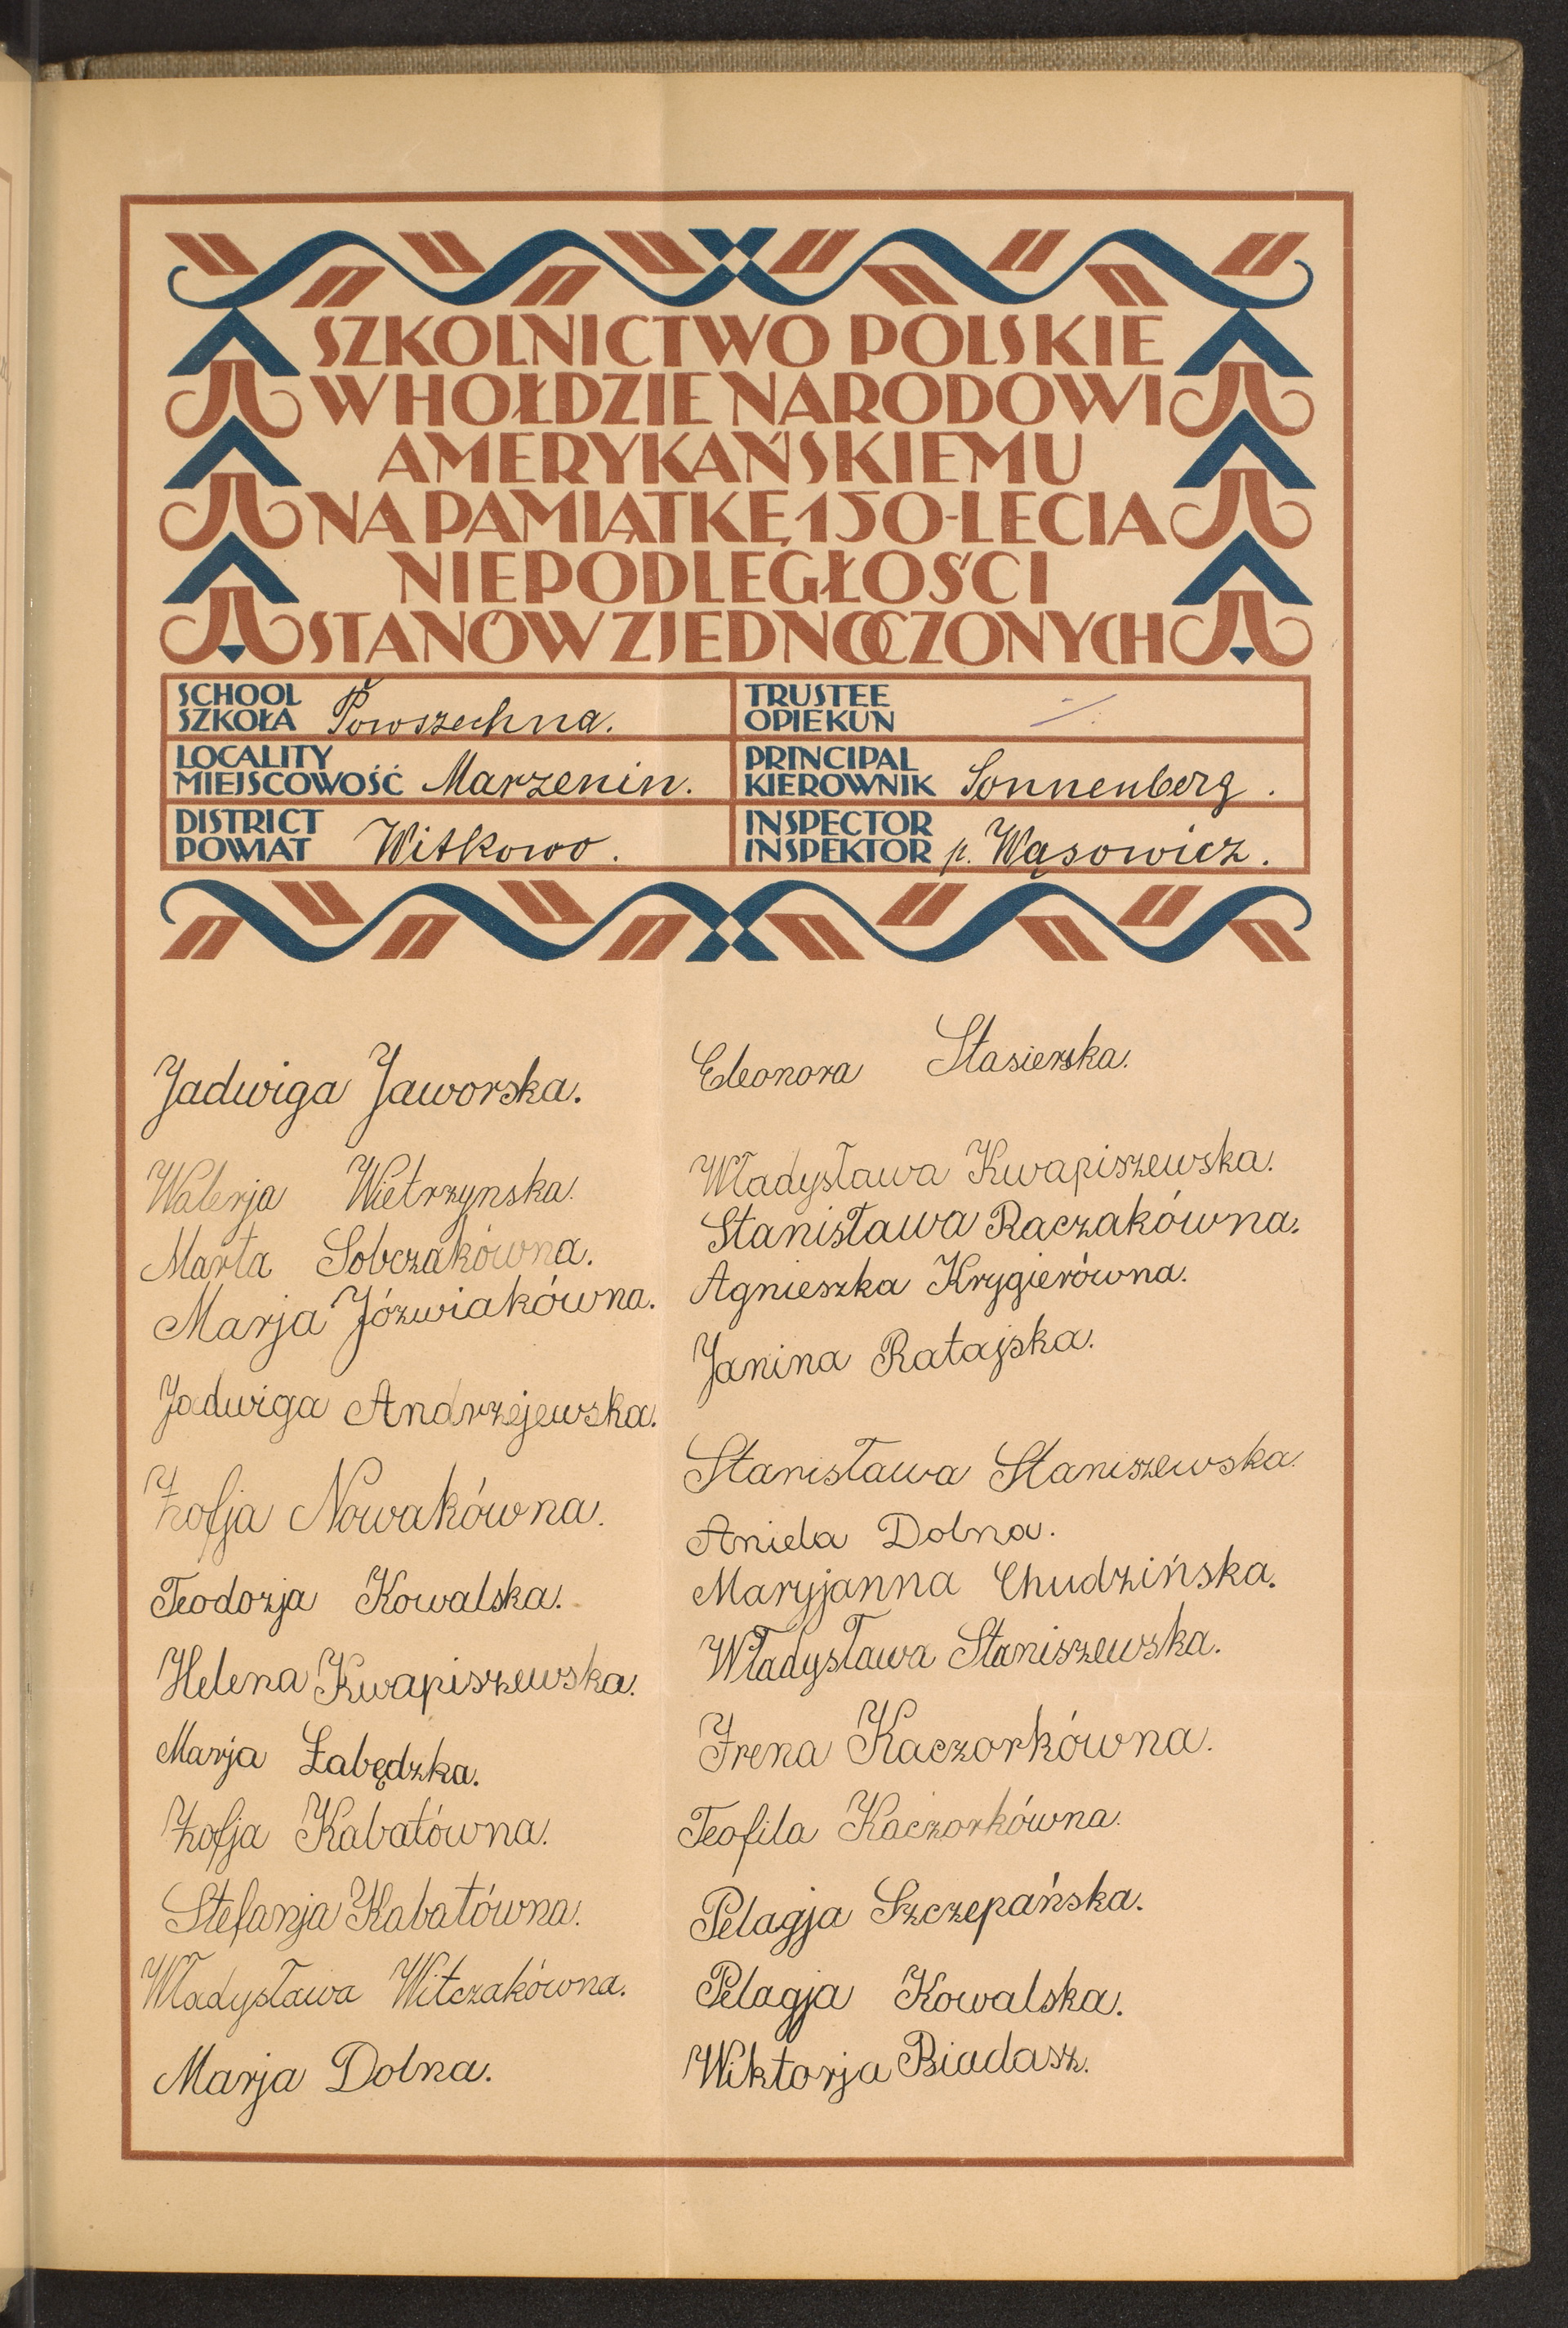 SZKOLNICTWO POLSKIE
W HOŁDZIE NARODOWI
AMERYKAŃSKIEMU
NA PAMIĄTKĘ 150-LECIA
NIEPODLEGŁOŚCI
STANÓW ZJEDNOCZONYCH
SCHOOL
SZKOŁA Powszechna.
TRUSTEE
OPIEKUN
LOCALITY
MIEJSCOWOŚĆ Marzenin.
PRINCIPAL
KIEROWNIK Sonnenberg.
DISTRICT
POWIAT Witkowo.
INSPECTOR
INSPEKTOR p. Wąsowicz.
Jadwiga Jaworska.
Walerja Wietrzynska.
Marta Sobczakówna.
Marja Józwiakówna.
Jadwiga Andrzejewska.
Zofja Nowakówna.
Teodozja Kowalska.
Helena Kwapiszewska.
Marja Łabędzka.
Zofja Kabatówna.
Stefanja Kabatówna.
Władysława Witczakówna.
Marja Dolna.
Eleonora Stasierska.
Władysława Kwapiszewska.
Stanisława Raczakówna.
Agnieszka Krygierówna.
Janina Ratajska.
Stanisława Staniszewska.
Aniela Dolna.
Maryjanna Chudzińska.
Władysława Staniszewska.
Irena Kaczorkówna.
Teofila Kaczorkówna.
Pelagja Szczepańska.
Pelagja Kowalska.
Wiktorja Biadasz.